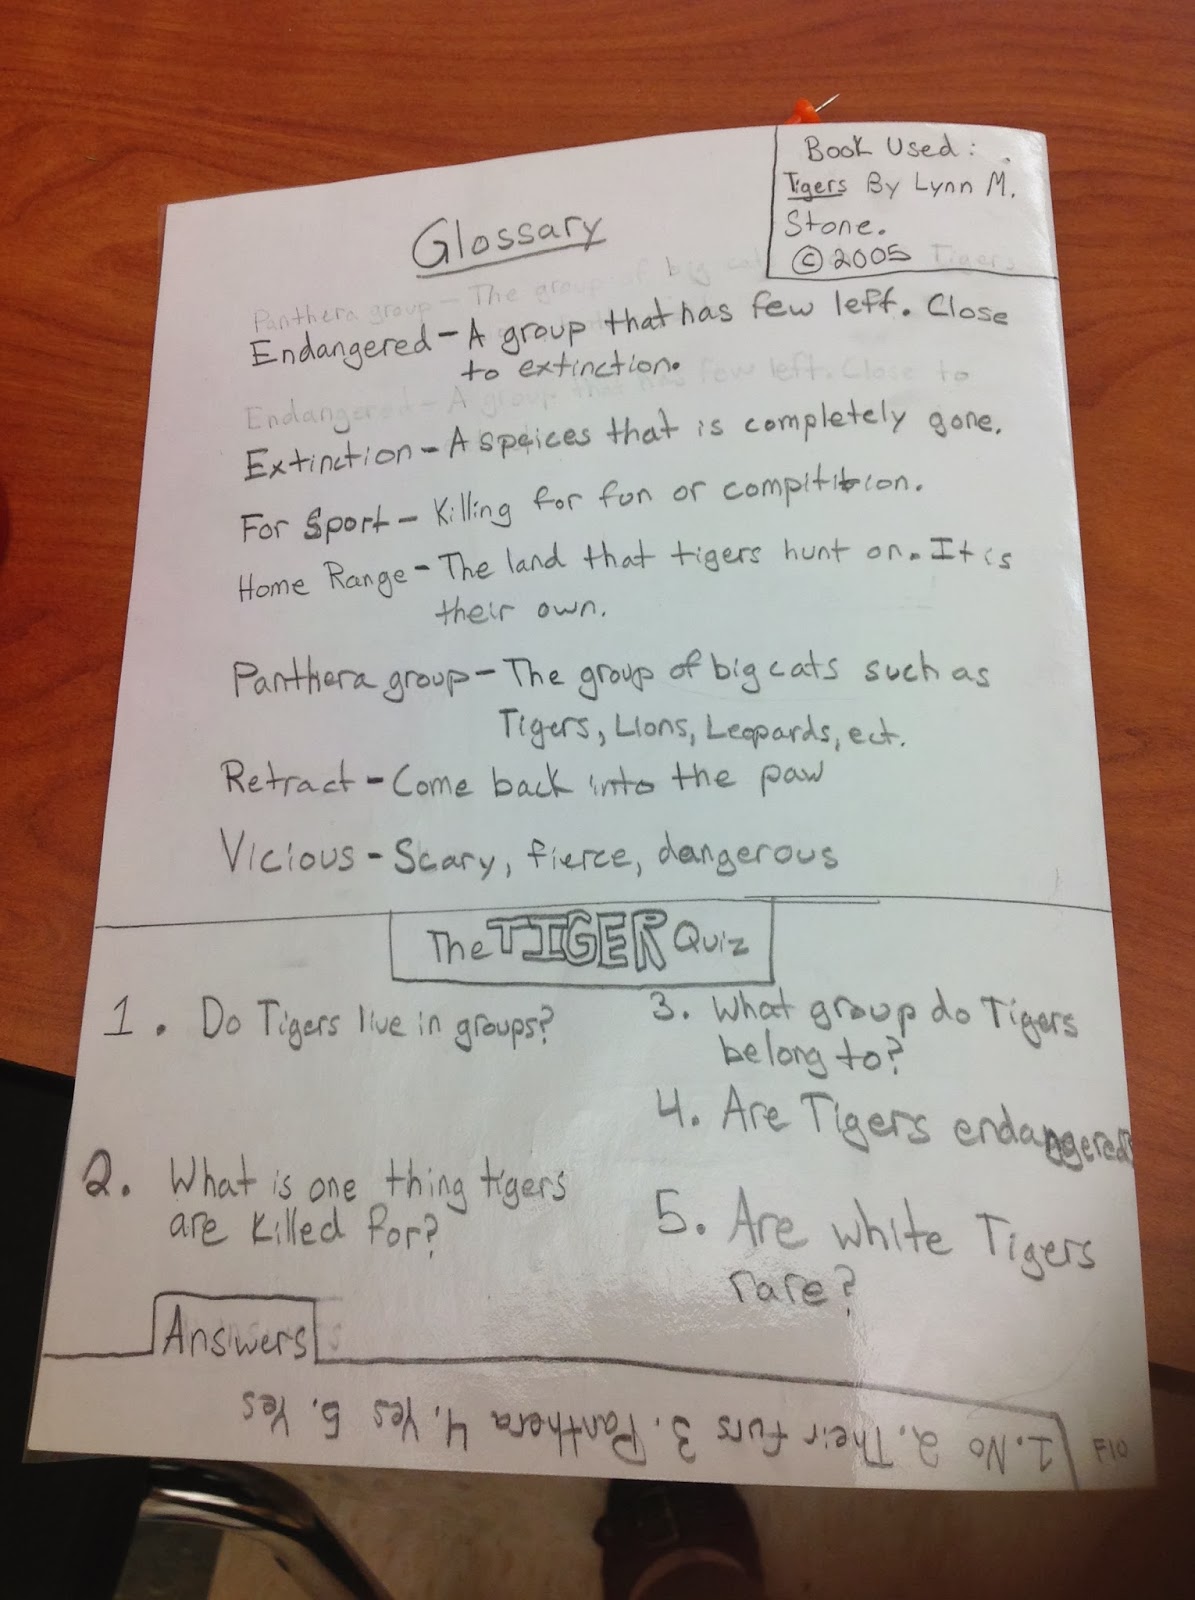 Book Used:
Tigers By Lynn M.
Stone.
© 2005
Glossary
Panthera group - The group of big cat Tigers
Endangered - A group that has few left. Close
to extinction.
Endangered - A group that has few left. Close to
Extinction - A speices that is completely gone.
For Sport - Killing for fun or compitition.
Home Range - The land that tigers hunt on. It is
their own.
Panthera group - The group of big cats such as
Tigers, Lions, Leopards, ect.
Retract - Come back into the paw
Vicious - Scary, fierce, dangerous
The TIGER Quiz
1. Do Tigers live in groups?
2. What is one thing tigers
are killed for?
3. What group do Tigers
belong to?
4. Are Tigers endangered
5. Are white Tigers
rare?
Answers
1. No 2. Their furs 3. Panthera 4. Yes 5. Yes
F10